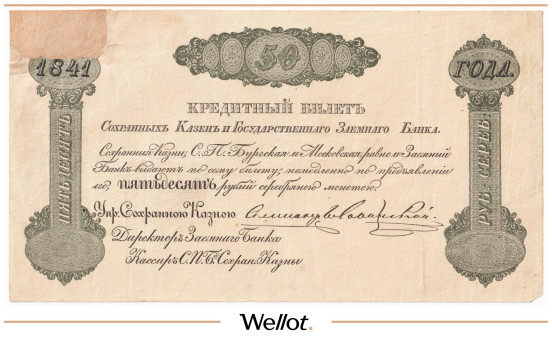 1841
50
ГОДА.
КРЕДИТНЫЙ БИЛЕТЪ
Сохранныхъ Казенъ и Государственнаго Заемнаго Банка.
Сохранныя Казны, С.П. Бургская и Московская, равно и Заемный
Банкъ выдаютъ по сему билету, немедленно по предъявленіи
его, пятьдесятъ рублей серебряною монетою.
Упр: Сохранною Казною
Директоръ Заемнаго Банка
Кассиръ С.П.Б. Сохран. Казны
ПЯТЬДЕСЯТЪ
РУБ: СЕРЕБ:
Wellot.